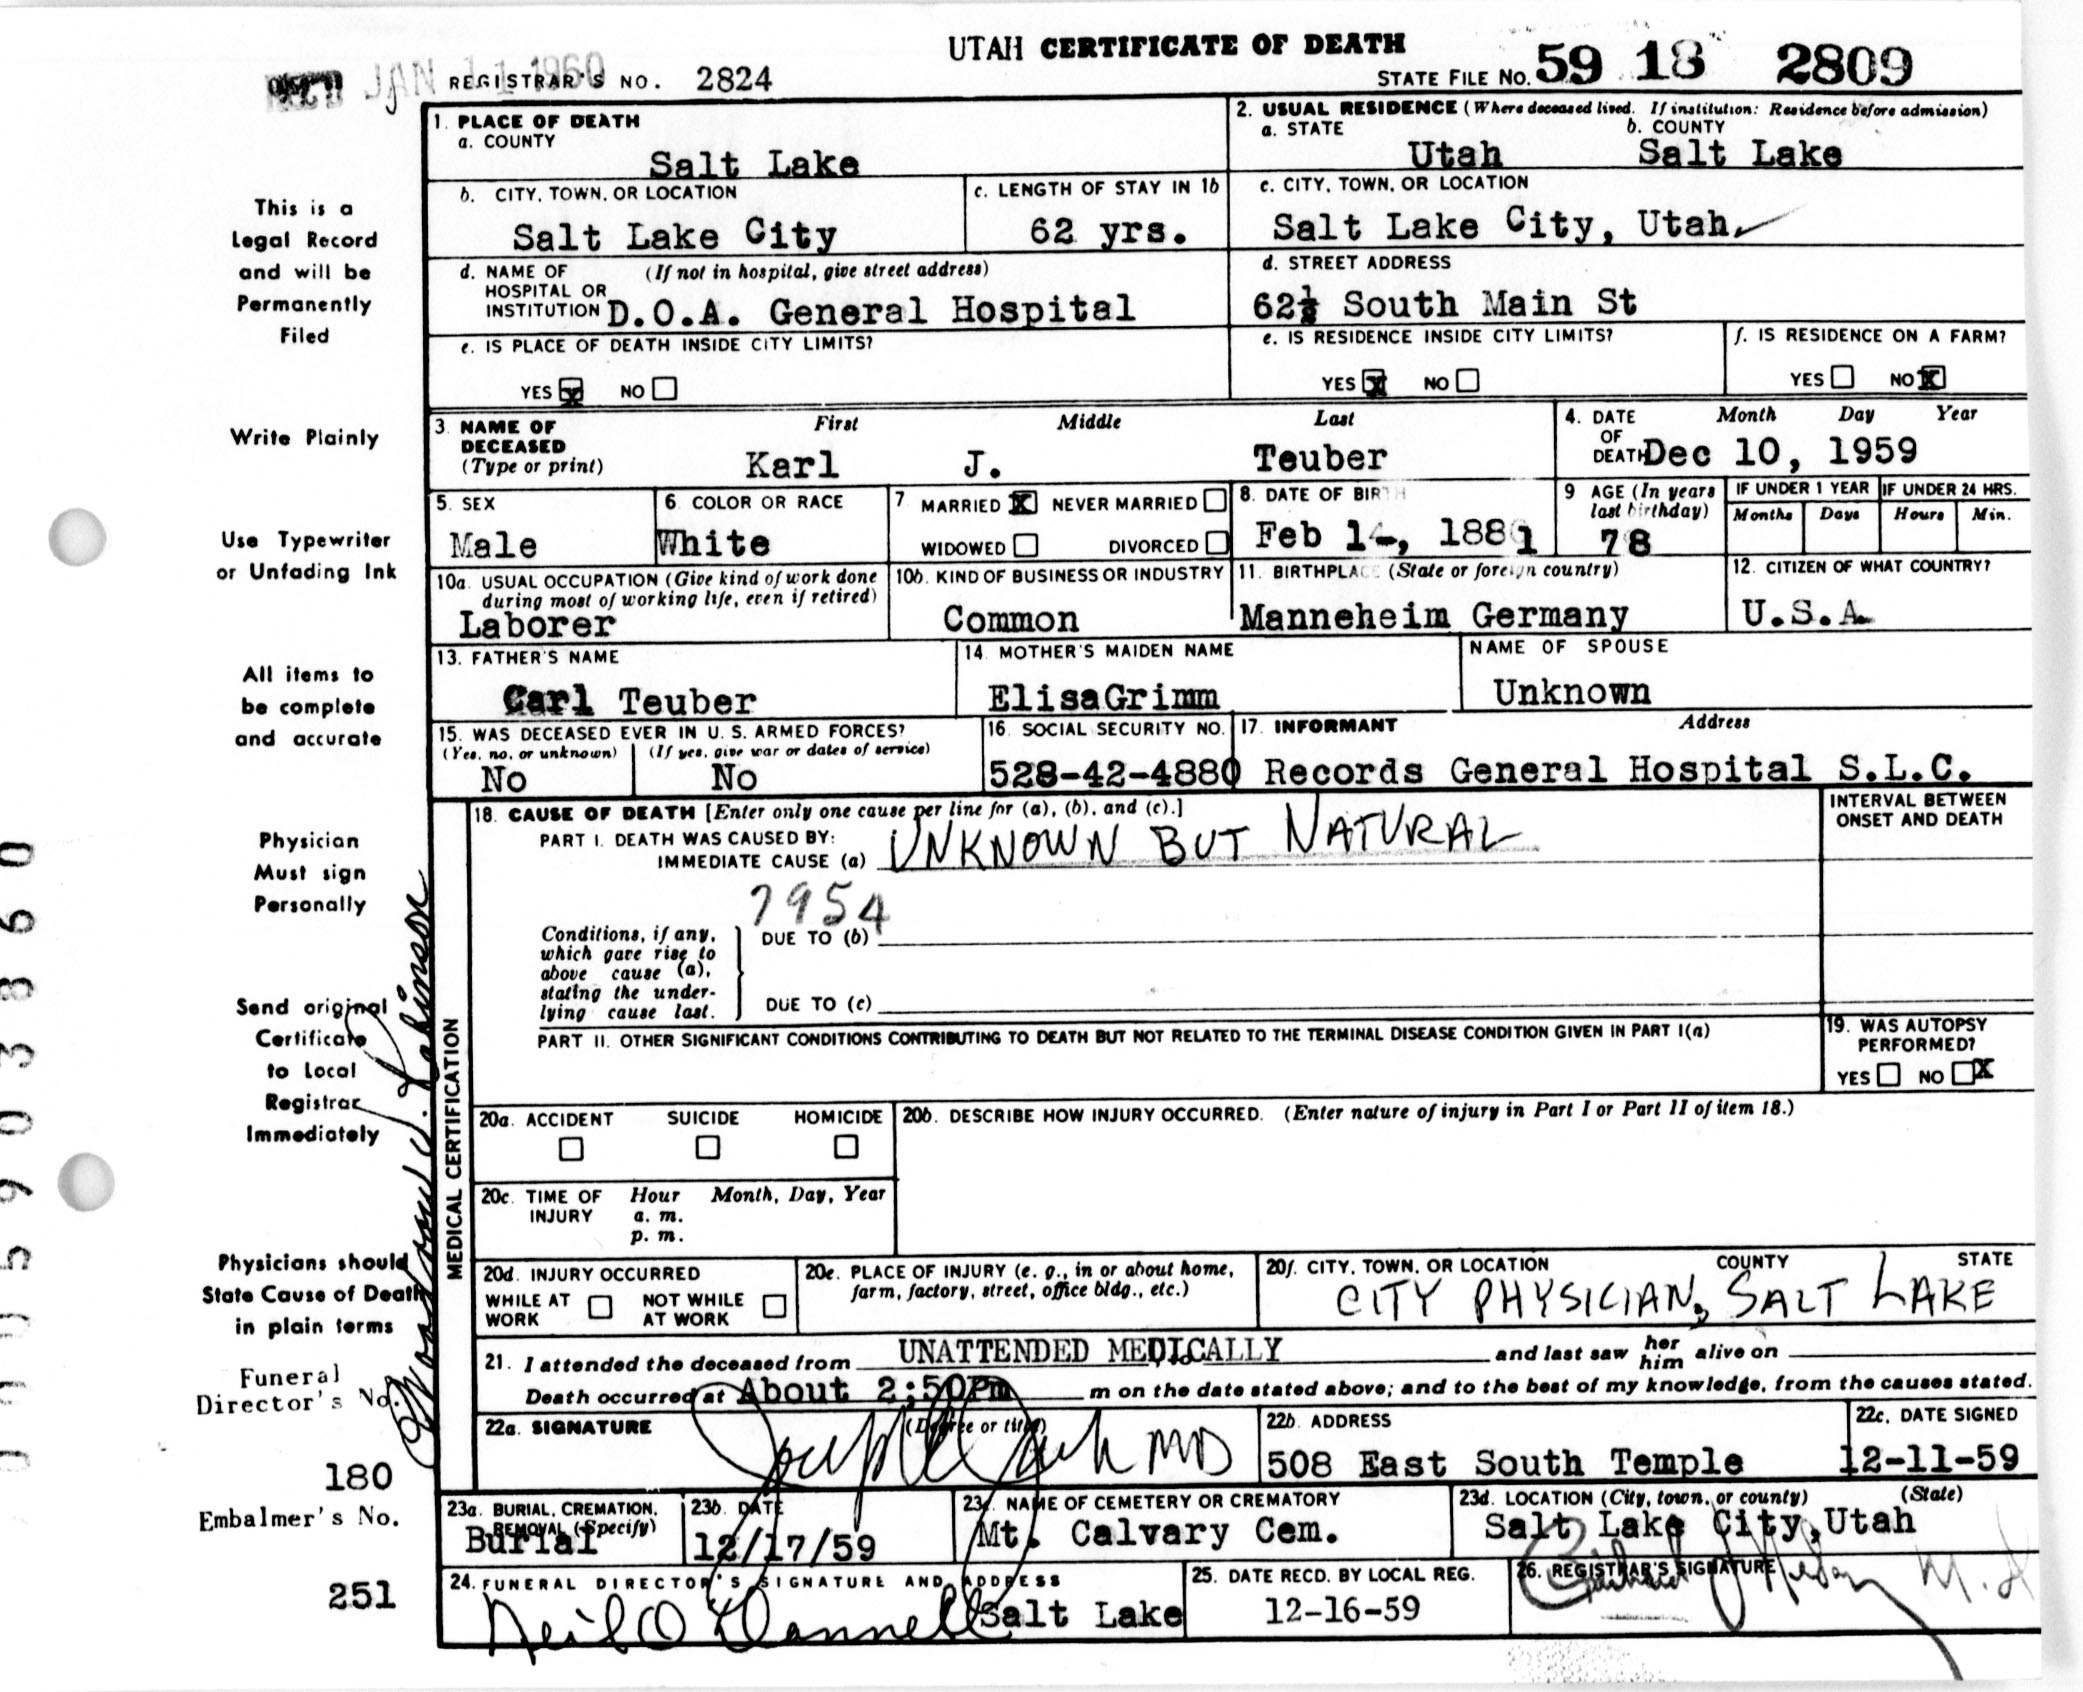 UTAH CERTIFICATE OF DEATH
JAN 11 1960
REGISTRAR'S NO. 2824
STATE FILE NO. 59 18 2809
1. PLACE OF DEATH
a. COUNTY
Salt Lake
2. USUAL RESIDENCE (Where deceased lived. If institution: Residence before admission)
a. STATE b. COUNTY
Utah Salt Lake
b. CITY, TOWN, OR LOCATION
Salt Lake City
c. LENGTH OF STAY IN 1b
62 yrs.
c. CITY, TOWN, OR LOCATION
Salt Lake City, Utah
d. NAME OF (If not in hospital, give street address)
HOSPITAL OR
INSTITUTION D.O.A. General Hospital
d. STREET ADDRESS
62½ South Main St
e. IS PLACE OF DEATH INSIDE CITY LIMITS?
YES X NO
e. IS RESIDENCE INSIDE CITY LIMITS?
YES X NO
f. IS RESIDENCE ON A FARM?
YES NO X
3. NAME OF DECEASED
(Type or print)
First Middle Last
Karl J. Teuber
4. DATE OF DEATH Month Day Year
Dec 10, 1959
5. SEX
Male
6. COLOR OR RACE
White
7 MARRIED X NEVER MARRIED
WIDOWED DIVORCED
8. DATE OF BIRTH
Feb 14, 1881
9 AGE (In years
last birthday)
78
IF UNDER 1 YEAR IF UNDER 24 HRS.
Months Days Hours Min.
10a. USUAL OCCUPATION (Give kind of work done
during most of working life, even if retired)
Laborer
10b. KIND OF BUSINESS OR INDUSTRY
Common
11. BIRTHPLACE (State or foreign country)
Manneheim Germany
12. CITIZEN OF WHAT COUNTRY?
U.S.A.
13. FATHER'S NAME
Carl Teuber
14. MOTHER'S MAIDEN NAME
ElisaGrimm
NAME OF SPOUSE
Unknown
15. WAS DECEASED EVER IN U. S. ARMED FORCES?
(Yes, no, or unknown) (If yes, give war or dates of service)
No No
16. SOCIAL SECURITY NO.
528-42-4880
17. INFORMANT Address
Records General Hospital S.L.C.
MEDICAL CERTIFICATION
18. CAUSE OF DEATH [Enter only one cause per line for (a), (b), and (c).]
PART I. DEATH WAS CAUSED BY:
IMMEDIATE CAUSE (a) UNKNOWN BUT NATURAL
7954
Conditions, if any,
which gave rise to
above cause (a),
stating the under-
lying cause last.
DUE TO (b)
DUE TO (c)
INTERVAL BETWEEN
ONSET AND DEATH
PART II. OTHER SIGNIFICANT CONDITIONS CONTRIBUTING TO DEATH BUT NOT RELATED TO THE TERMINAL DISEASE CONDITION GIVEN IN PART I(a)
19. WAS AUTOPSY
PERFORMED?
YES NO X
20a. ACCIDENT SUICIDE HOMICIDE
20b. DESCRIBE HOW INJURY OCCURRED. (Enter nature of injury in Part I or Part II of item 18.)
20c. TIME OF INJURY Hour Month, Day, Year
a. m.
p. m.
20d. INJURY OCCURRED
WHILE AT WORK NOT WHILE AT WORK
20e. PLACE OF INJURY (e. g., in or about home,
farm, factory, street, office bldg., etc.)
20f. CITY, TOWN, OR LOCATION COUNTY STATE
CITY PHYSICIAN, SALT LAKE
21. I attended the deceased from UNATTENDED MEDICALLY and last saw her him alive on
Death occurred at About 2:50Pm m on the date stated above; and to the best of my knowledge, from the causes stated.
22a. SIGNATURE (Degree or title)
MD
22b. ADDRESS
508 East South Temple
22c. DATE SIGNED
12-11-59
23a. BURIAL, CREMATION,
REMOVAL (Specify)
Burial
23b. DATE
12/17/59
23c. NAME OF CEMETERY OR CREMATORY
Mt. Calvary Cem.
23d. LOCATION (City, town, or county) (State)
Salt Lake City, Utah
24. FUNERAL DIRECTOR'S SIGNATURE AND ADDRESS
Neil O'Donnell Salt Lake
25. DATE RECD. BY LOCAL REG.
12-16-59
26. REGISTRAR'S SIGNATURE
This is a
Legal Record
and will be
Permanently
Filed
Write Plainly
Use Typewriter
or Unfading Ink
All items to
be complete
and accurate
Physician
Must sign
Personally
Send original
Certificate
to Local
Registrar
Immediately
Physicians should
State Cause of Death
in plain terms
Funeral
Director's No.
180
Embalmer's No.
251